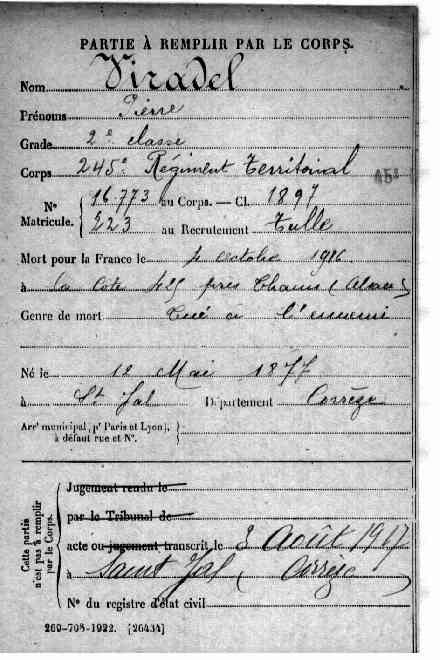 PARTIE À REMPLIR PAR LE CORPS.
Nom Viradel
Prénoms Pierre
Grade 2e classe
Corps 245e Régiment Territorial
N° Matricule. { 16.773 au Corps. — Cl. 1897
223 au Recrutement Tulle
Mort pour la France le 4 octobre 1916
à la Cote 425 près Thann (Alsace)
Genre de mort Tué à l'ennemi
Né le 12 Mai 1877
à St Jal Département Corrèze
Arrt municipal, (pr Paris et Lyon), à défaut rue et N°. }
Cette partie n'est pas à remplir par le Corps.
Jugement rendu le
par le Tribunal de
acte ou jugement transcrit le 3 Août 1917
à Saint Jal (Corrèze
N° du registre d'état civil
269-708-1922. [26434]